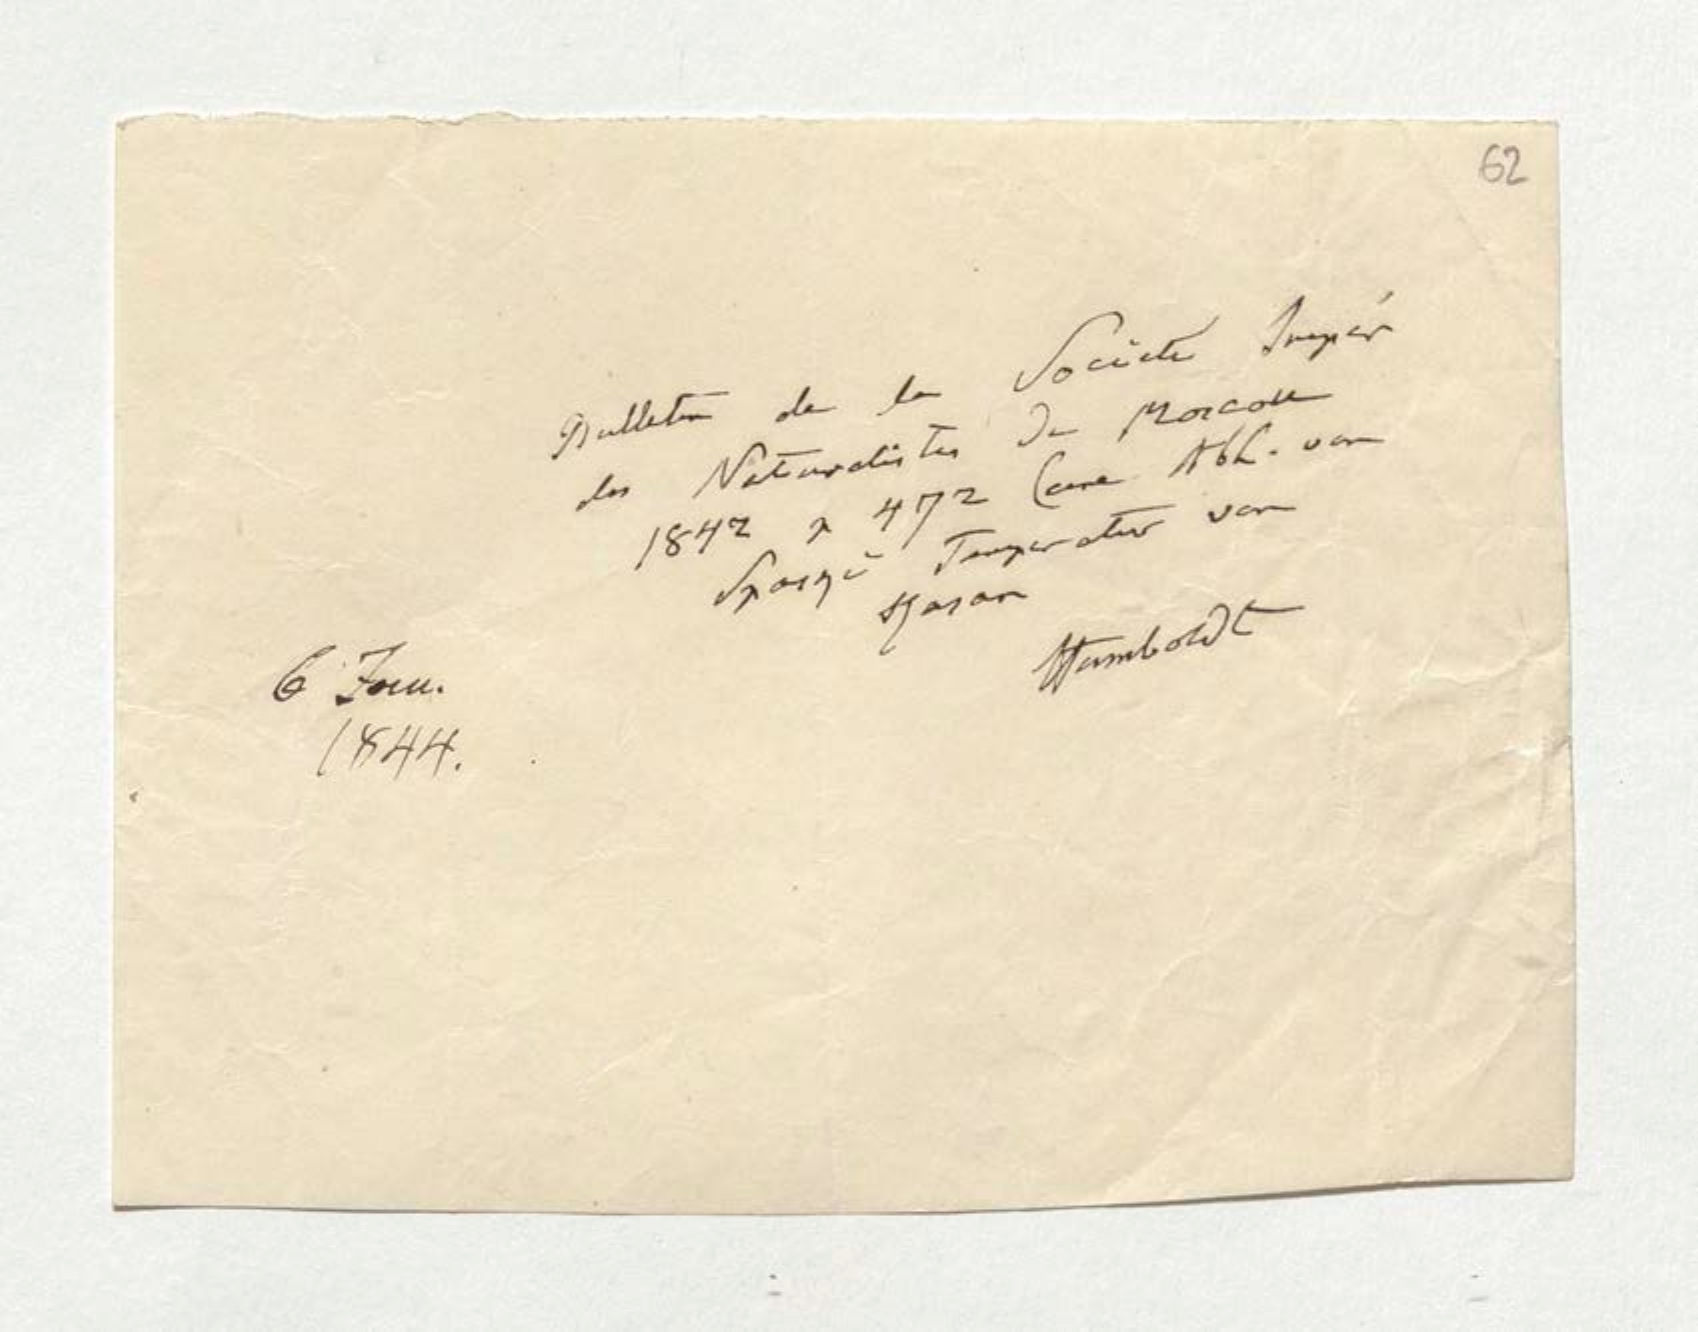 62
Bulletin de la Société Impér
des Naturalistes de Moscou
1842 p 472 (eine Abh. von
Temperatur von
Kasan
Humboldt
6
1844.